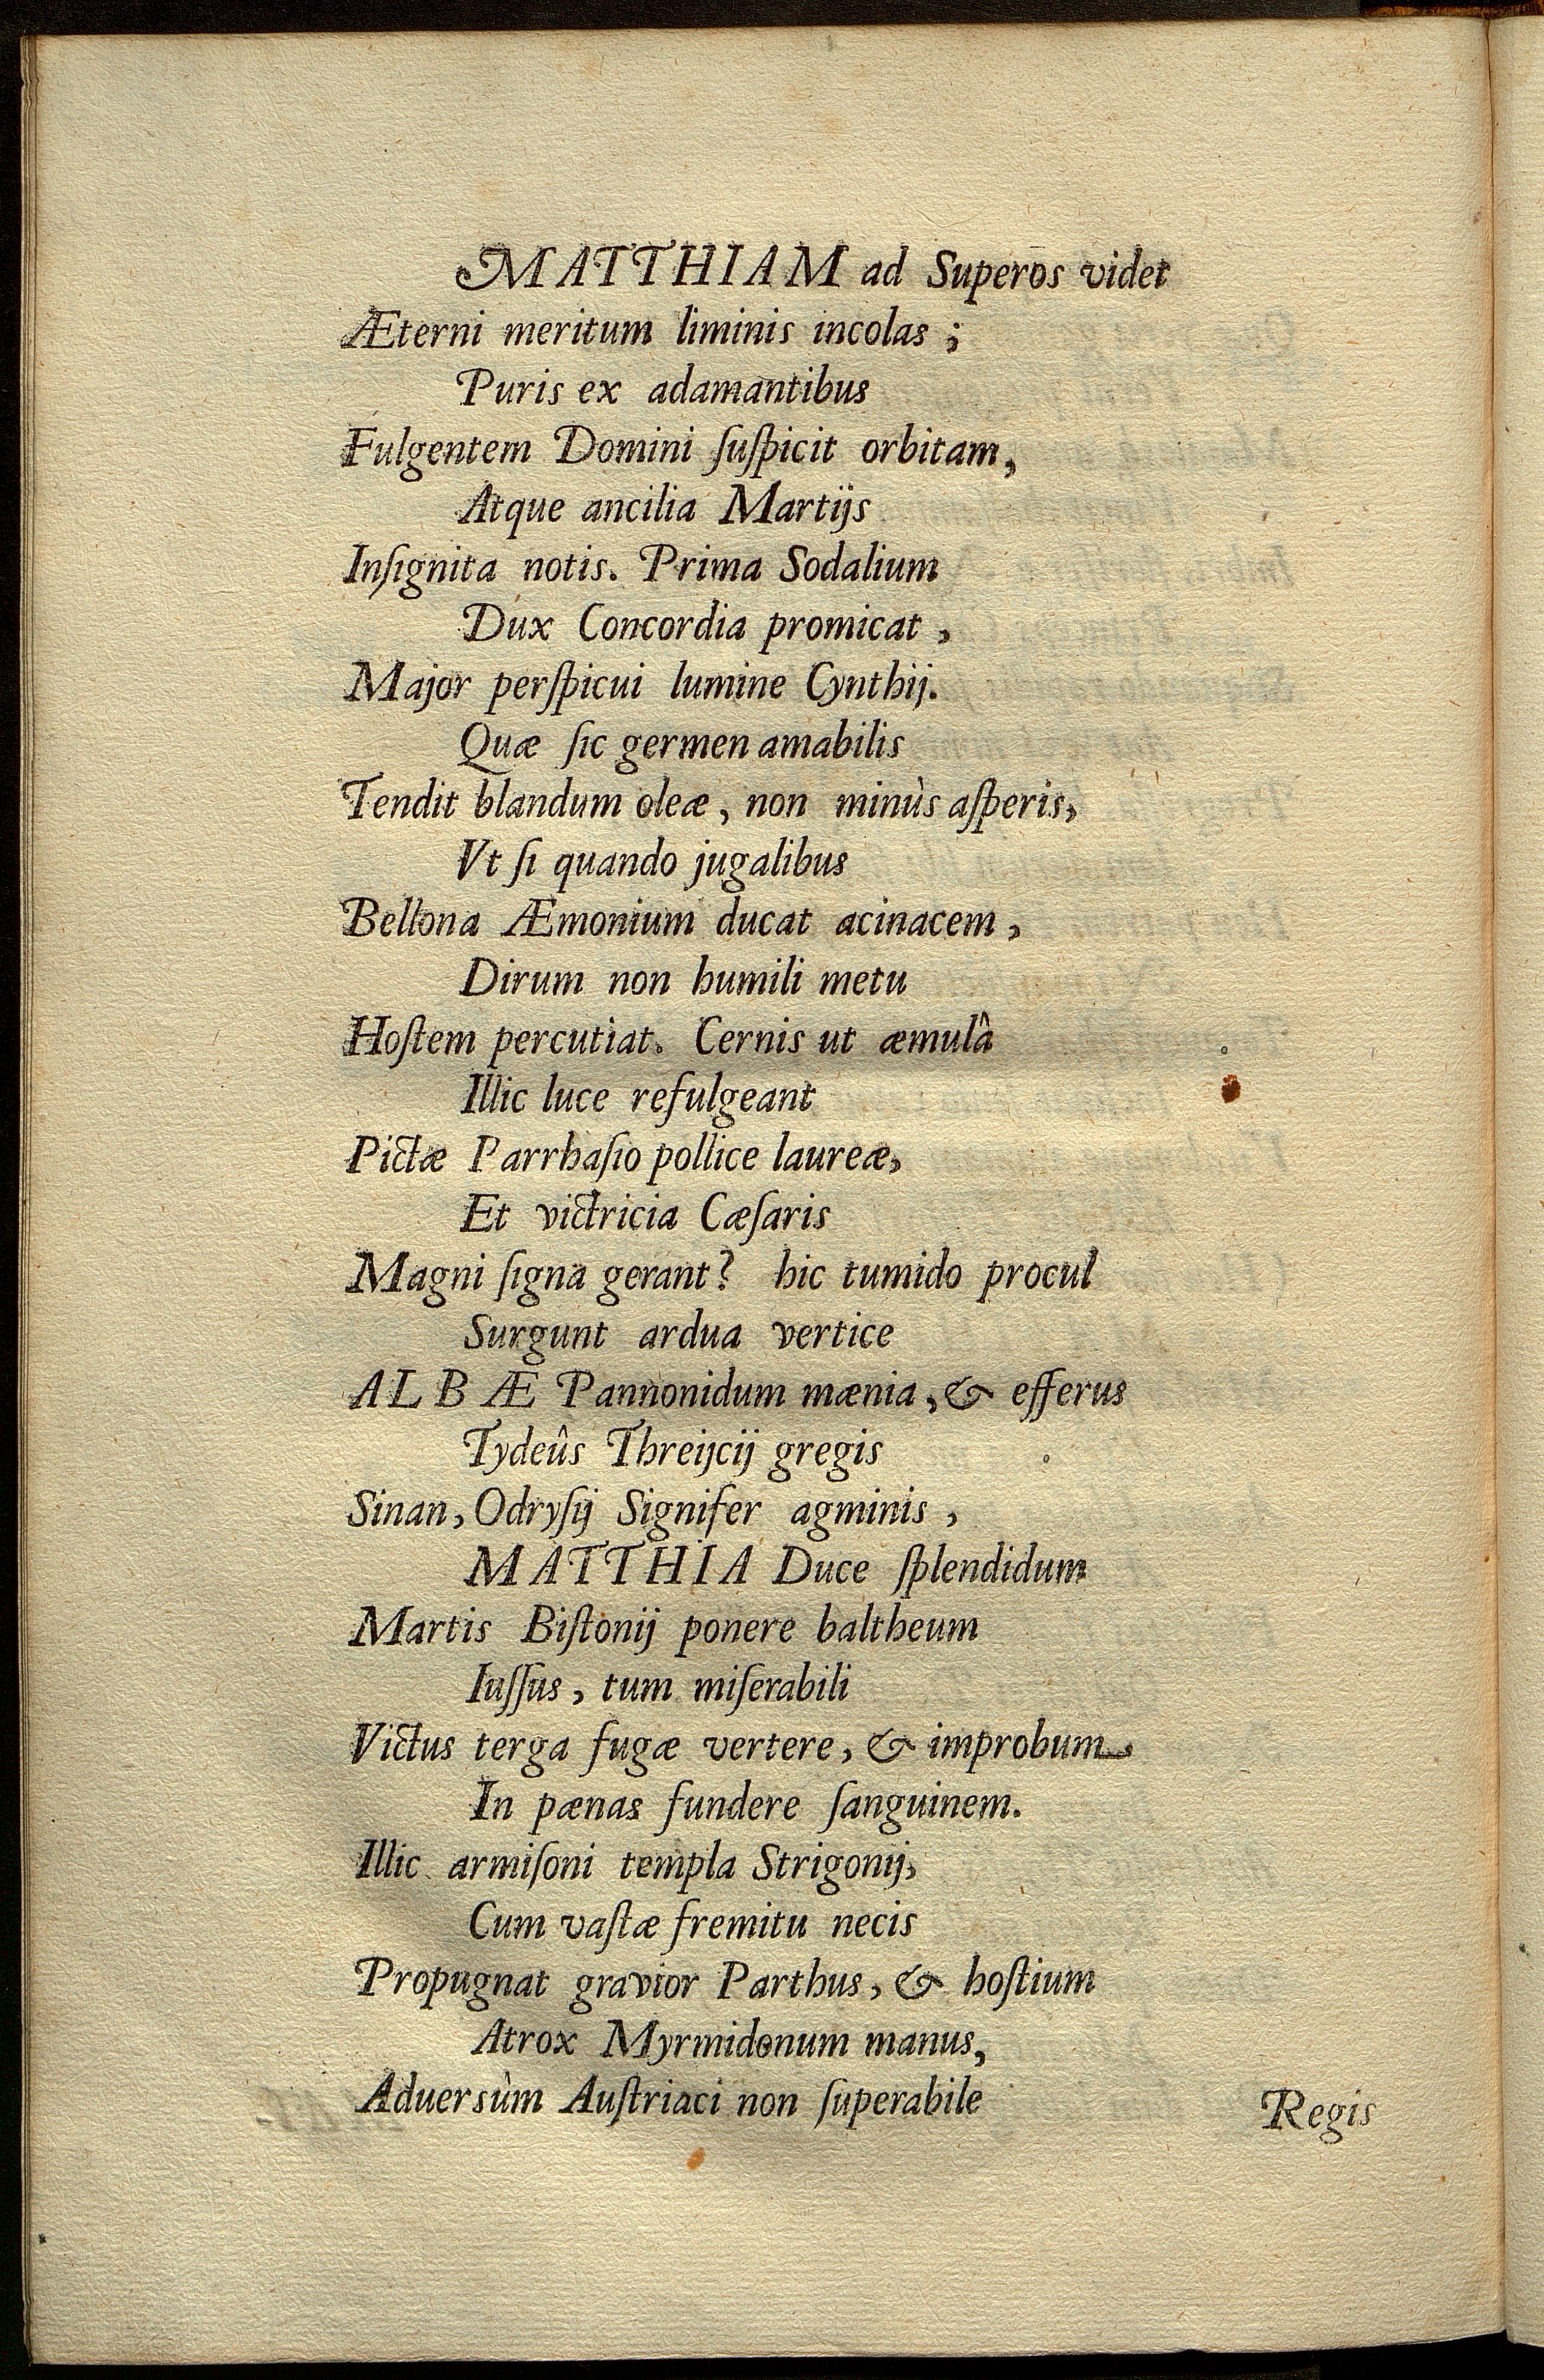 MATTHIAM ad Superos videt
Æterni meritum liminis incolas ;
Puris ex adamantibus
Fulgentem Domini ſuſpicit orbitam,
Atque ancilia Martijs
Inſignita notis. Prima Sodalium
Dux Concordia promicat ,
Major perſpicui lumine Cynthij.
Quæ ſic germen amabilis
Tendit blandum oleæ , non minùs aſperis,
Vt ſi quando jugalibus
Bellona Æmonium ducat acinacem ,
Dirum non humili metu
Hoſtem percutiat. Cernis ut æmulâ
Illic luce refulgeant
Pictæ Parrhaſio pollice laureæ,
Et victricia Cæſaris
Magni ſigna gerant? hic tumido procul
Surgunt ardua vertice
ALBÆ Pannonidum mænia , & efferus
Tydeûs Threijcij gregis
Sinan, Odryſij Signifer agminis ,
MATTHIA Duce ſplendidum
Martis Biſtonij ponere baltheum
Iuſſus , tum miſerabili
Victus terga fugæ vertere, & improbum
In pænas fundere ſanguinem.
Illic armiſoni templa Strigonij,
Cum vaſtæ fremitu necis
Propugnat gravior Parthus, & hoſtium
Atrox Myrmidonum manus,
Aduersùm Auſtriaci non ſuperabile
Regis